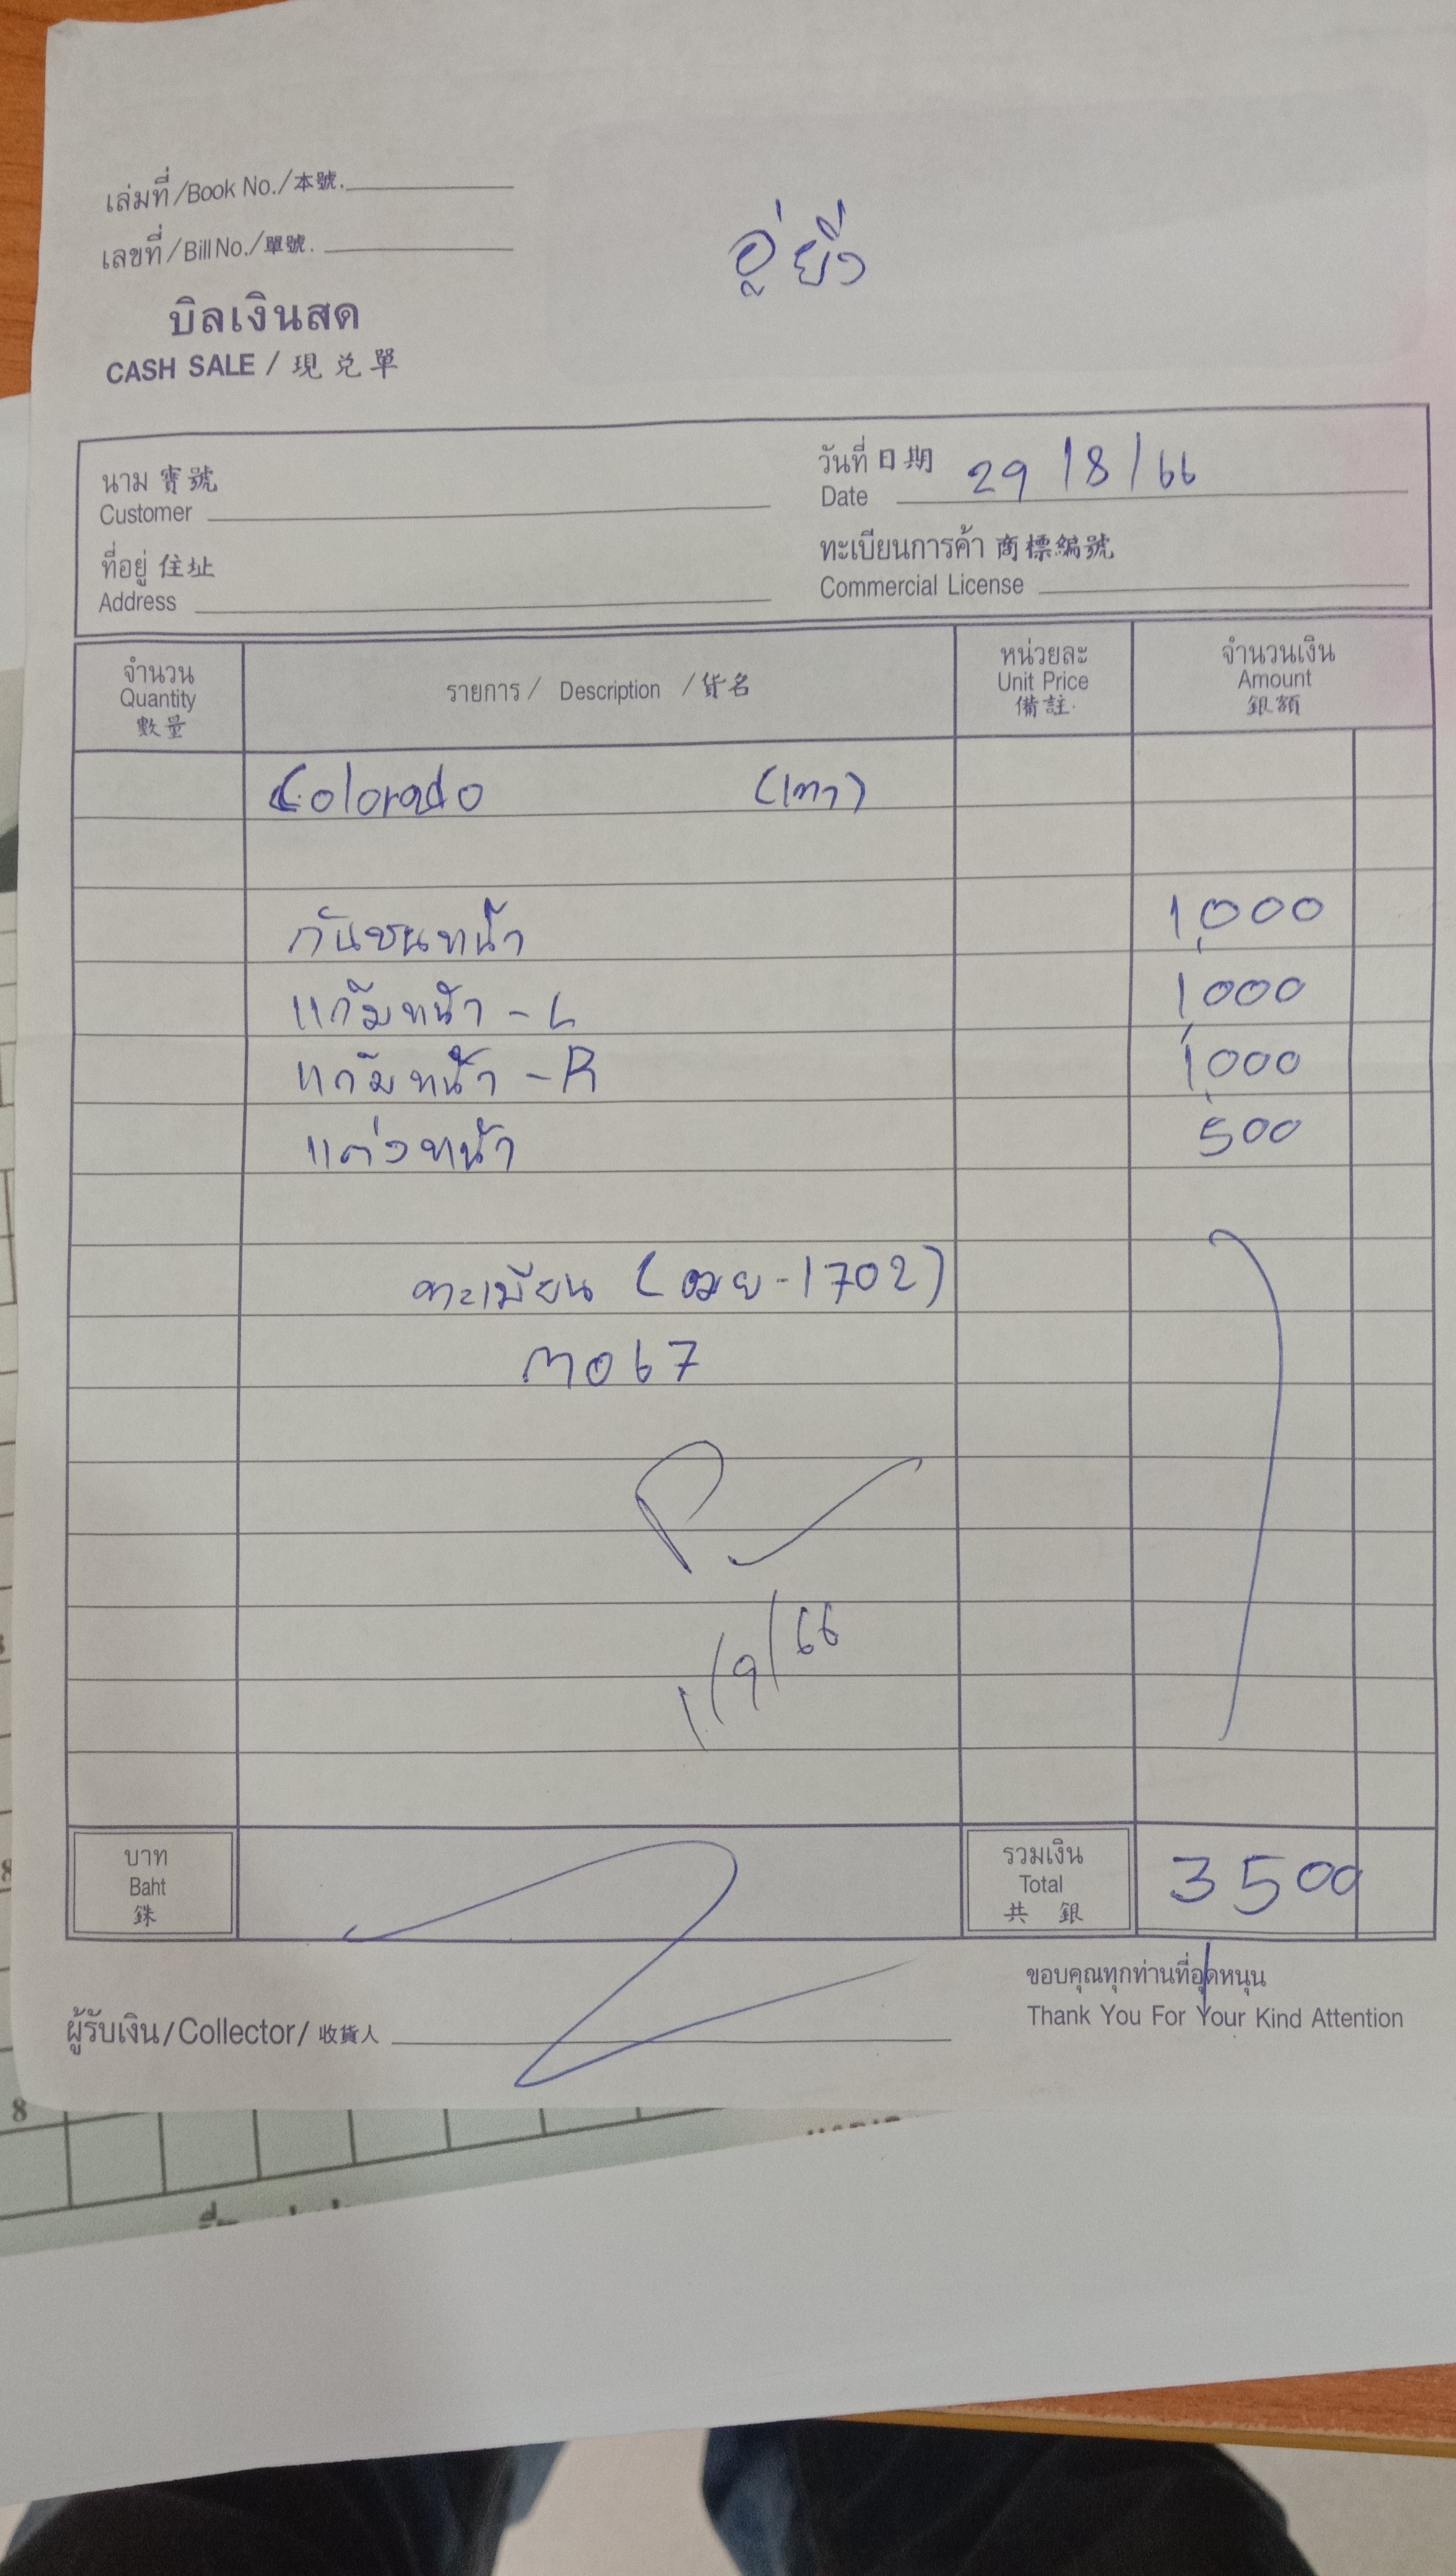 เล่มที่/Book No./本號.
เลขที่/Bill No./單號.
อู่ยิ่ง
บิลเงินสด
CASH SALE / 現兑單
นาม 寶號
Customer
วันที่ 日期 29/8/66
Date
ที่อยู่ 住址
Address
ทะเบียนการค้า 商標編號
Commercial License
จำนวน
Quantity
數量
รายการ / Description / 貨名
หน่วยละ
Unit Price
備註.
จำนวนเงิน
Amount
銀額
Colorado (เทา)
กันชนหน้า 1,000
แก้มหน้า - L 1,000
แก้มหน้า - R 1,000
แต่งหน้า 500
ทะเบียน ( - 1702)
M067
1/9/66
บาท
Baht
銖
รวมเงิน
Total
共 銀
3500
ขอบคุณทุกท่านที่อุดหนุน
Thank You For Your Kind Attention
ผู้รับเงิน/Collector/收貨人
8